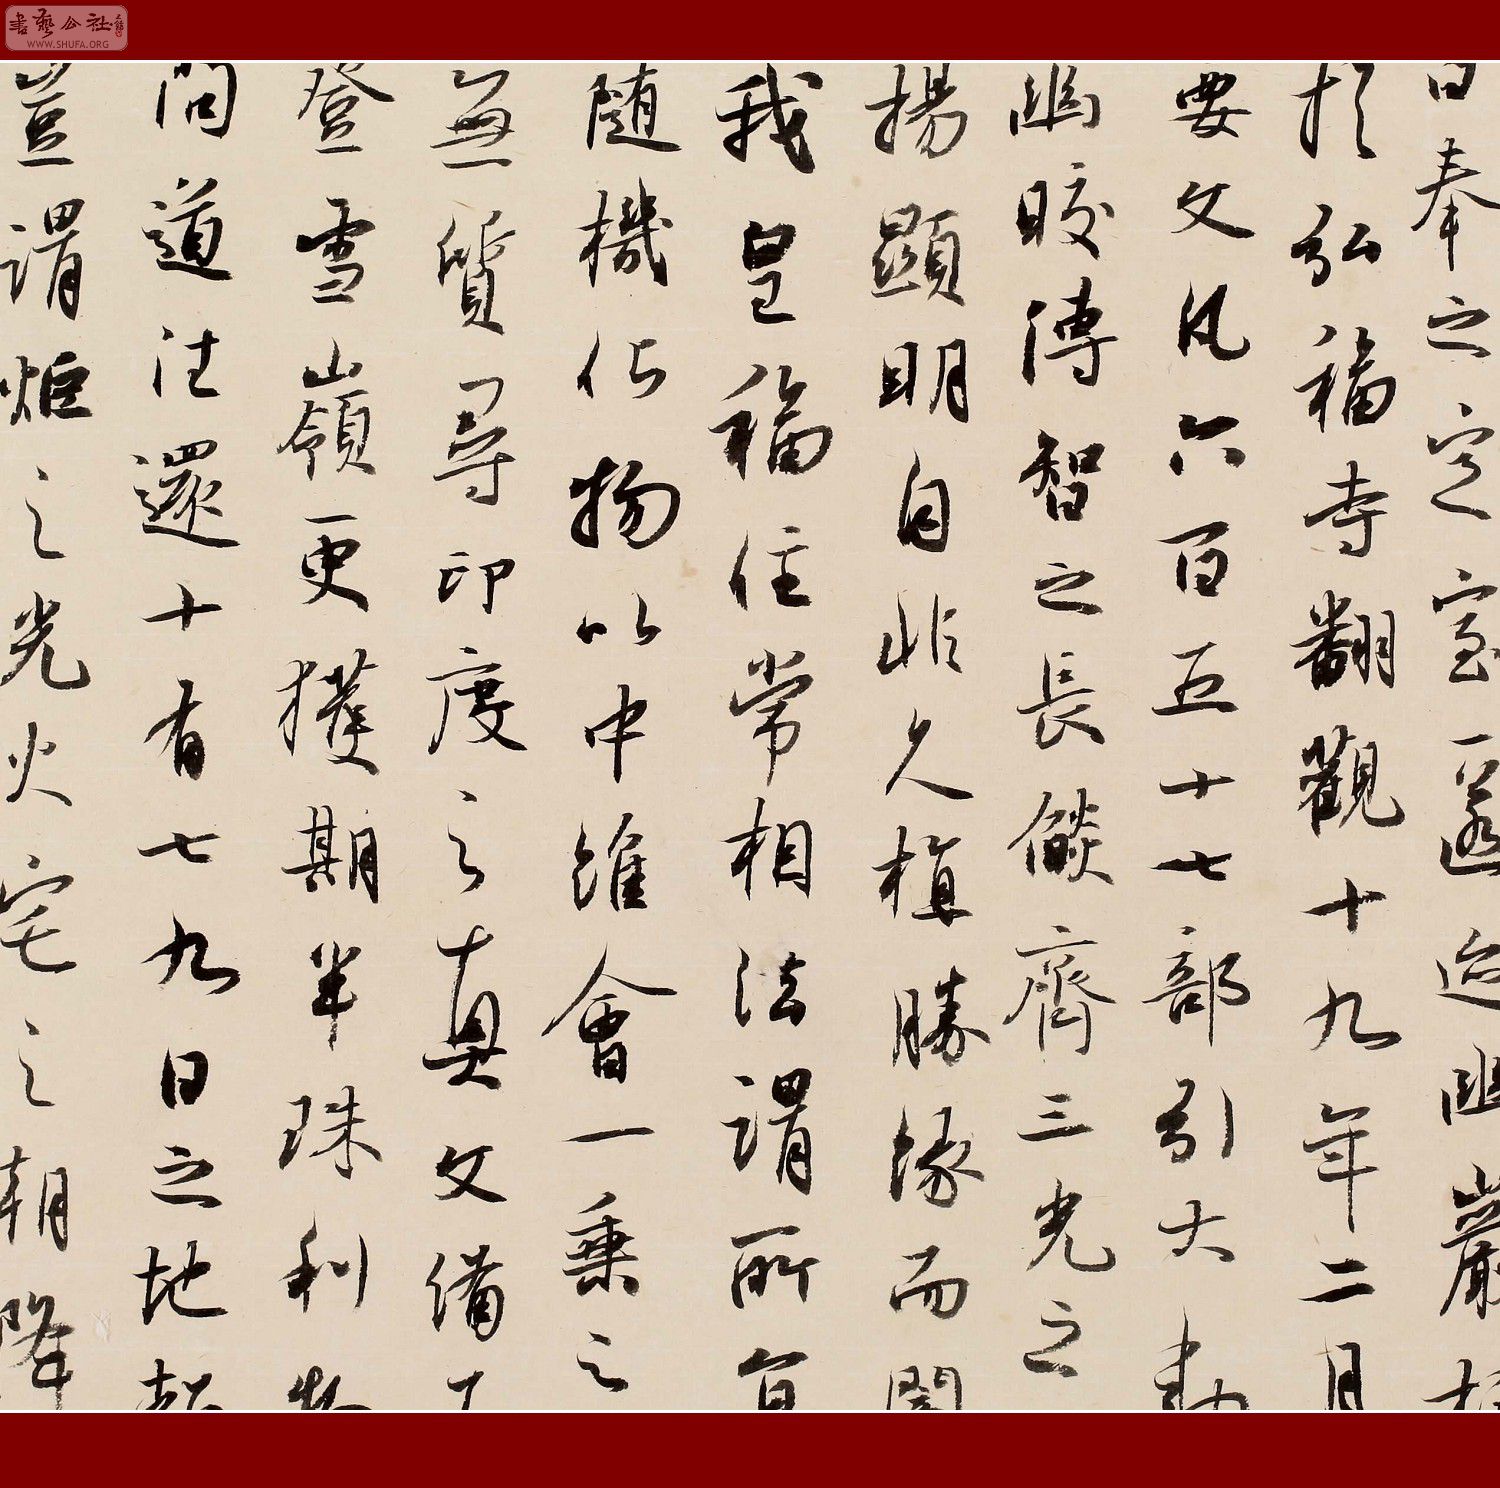 書藝公社
WWW.SHUFA.ORG
日奉之定室邈迨幽巖
於弘福寺翻觀十九年二月
要文凡六百五十七部引大
幽晈傳智之長燄齊三光之
揚顯明自非久植勝缘而
我皇福住常相法謂所宣
随機化物以中維會一乘之
無質尋印度之真文備
登雪嶺更獲期半珠
問道往還十有七九日之地
豈謂炬之光火宅之朝降